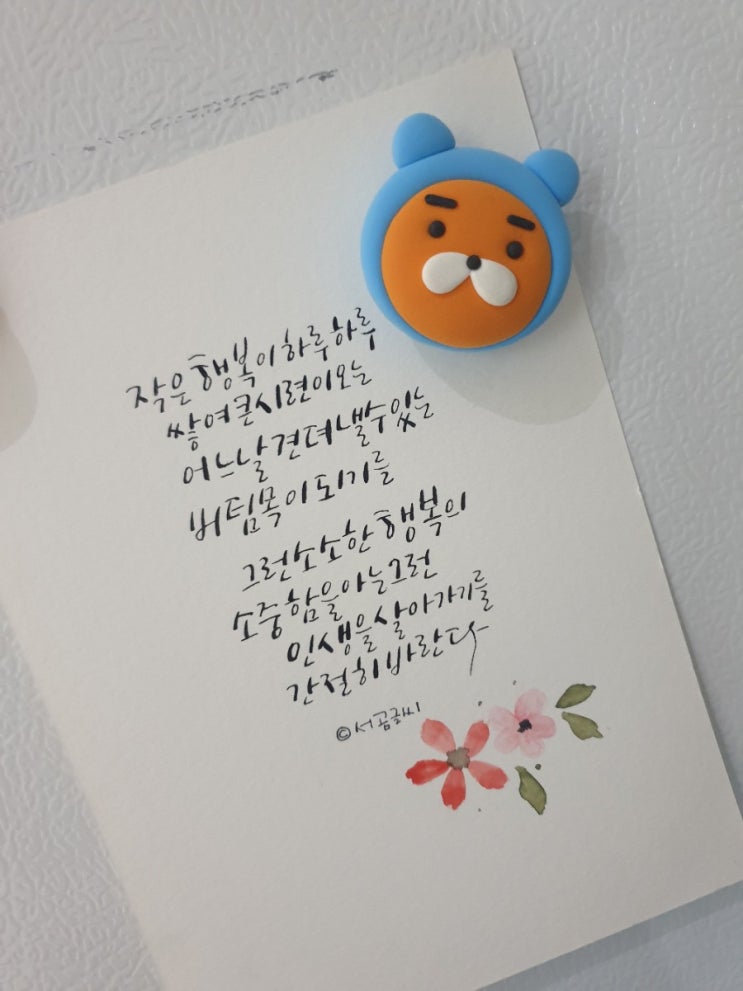 작은 행복이 하루하루
쌓여 큰 시련이 오는
어느 날 견뎌 낼 수 있는
버팀목이 되기를
그런 소소한 행복의
소중함을 아는 그런
인생을 살아가기를
간절히 바란다
©서곰글씨